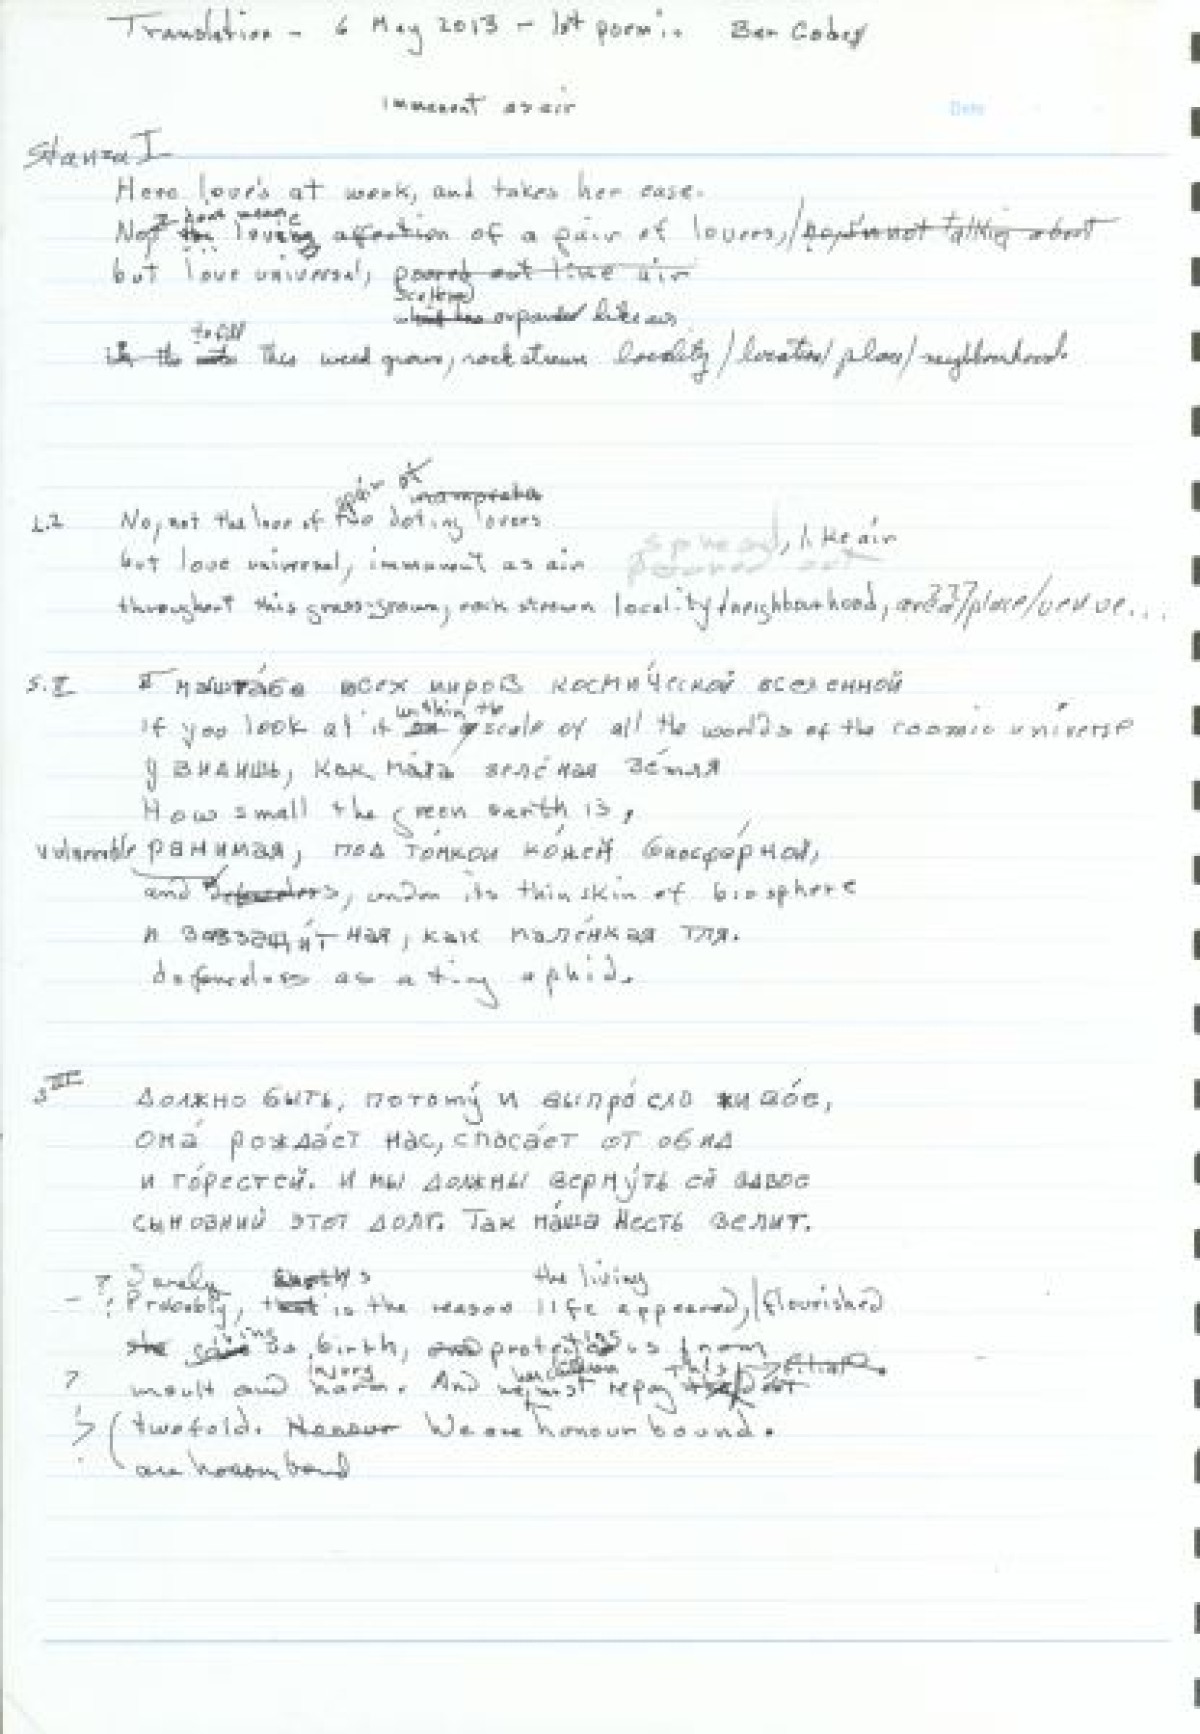 Translation - 6 May 2013 - 1st poem:. Ben
immanent as air
Date
Stanza I
Here love's at work, and takes her ease.
affection of a pair of lovers, / I'm not talking about
but love universal, poured out like air
scattered
expanded like air
to fill
in the this weed grown, rock strewn locality / location / place / neighbourhood.
pair of
L.2 No, not the love of two doting lovers
but love universal, immanent as air spread, like air
poured out
throughout this grass-grown, rock strewn locality / neighbourhood, area??/place/venue...
S.II В масштабе всех миров космической вселенной
within the
If you look at it on scale of all the worlds of the cosmic universe
увидишь, как мала зелёная земля
How small the green earth is,
vulnerable ранимая, под тонкой кожей биосферной,
and defenceless, under its thin skin of biosphere
и беззащитная, как маленькая тля.
defenceless as a tiny aphid.
S III Должно быть, потому и выпросло живое,
она рождает нас, спасает от обид
и горестей. И мы должны вернуть ей вдвое
сыновний этот долг. Так наша честь велит.
? Surely Earth's the living
- ? Probably, that is the reason life appeared, / flourished
she gives us birth, and protects us from
injury her children this filial
? insult and harm. And we must repay the debt
? ( twofold. Honour We are honour bound.
? are honour bound